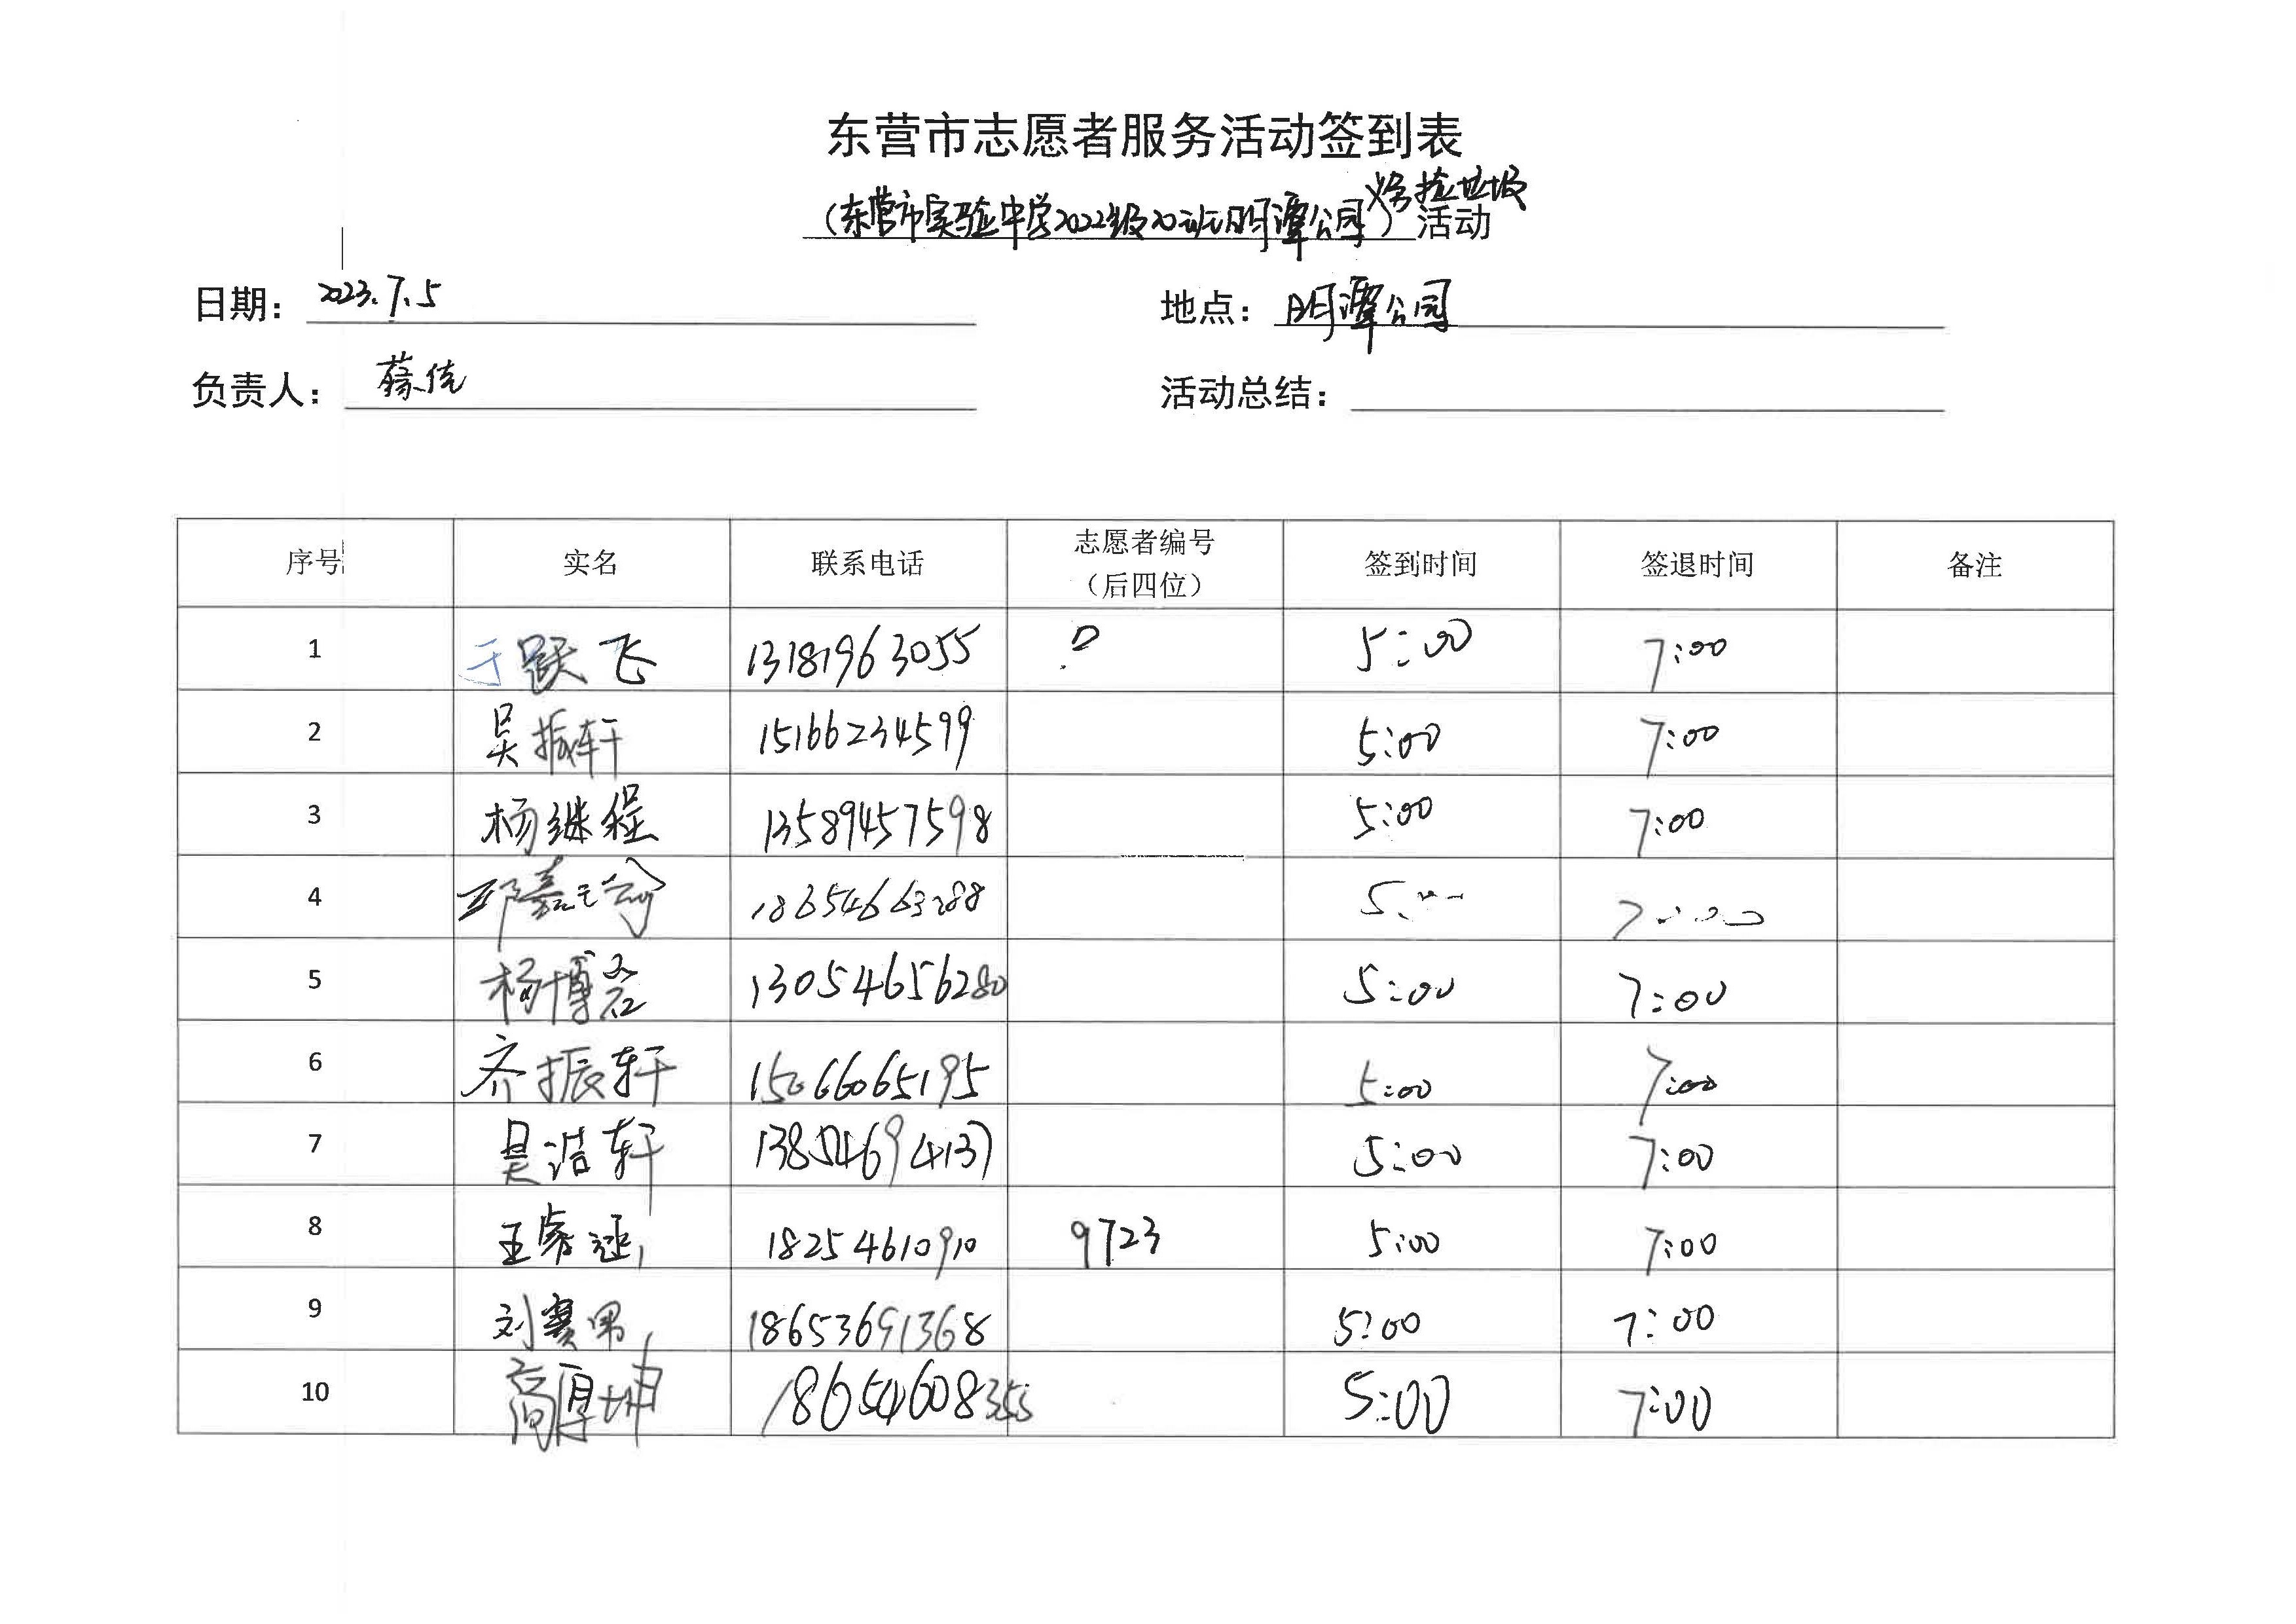 东营市志愿者服务活动签到表
义务捡垃圾
(东营市实验中学2022级20班明潭公园) 活动
日期: 2023.7.5 地点: 明潭公园
负责人: 活动总结:
序号 实名 联系电话 志愿者编号（后四位） 签到时间 签退时间 备注
1 于跃飞 13181963055 5:00 7:00
2 吴振轩 15166234599 5:00 7:00
3 杨继程 13589457598 5:00 7:00
4 18654663288 5:00 7:00
5 杨博 13054656280 5:00 7:00
6 齐振轩 15066065195 5:00 7:00
7 吴浩轩 13854694137 5:00 7:00
8 王 18254610910 9723 5:00 7:00
9 刘赛男 18653691368 5:00 7:00
10 高厚坤 18654608355 5:00 7:00